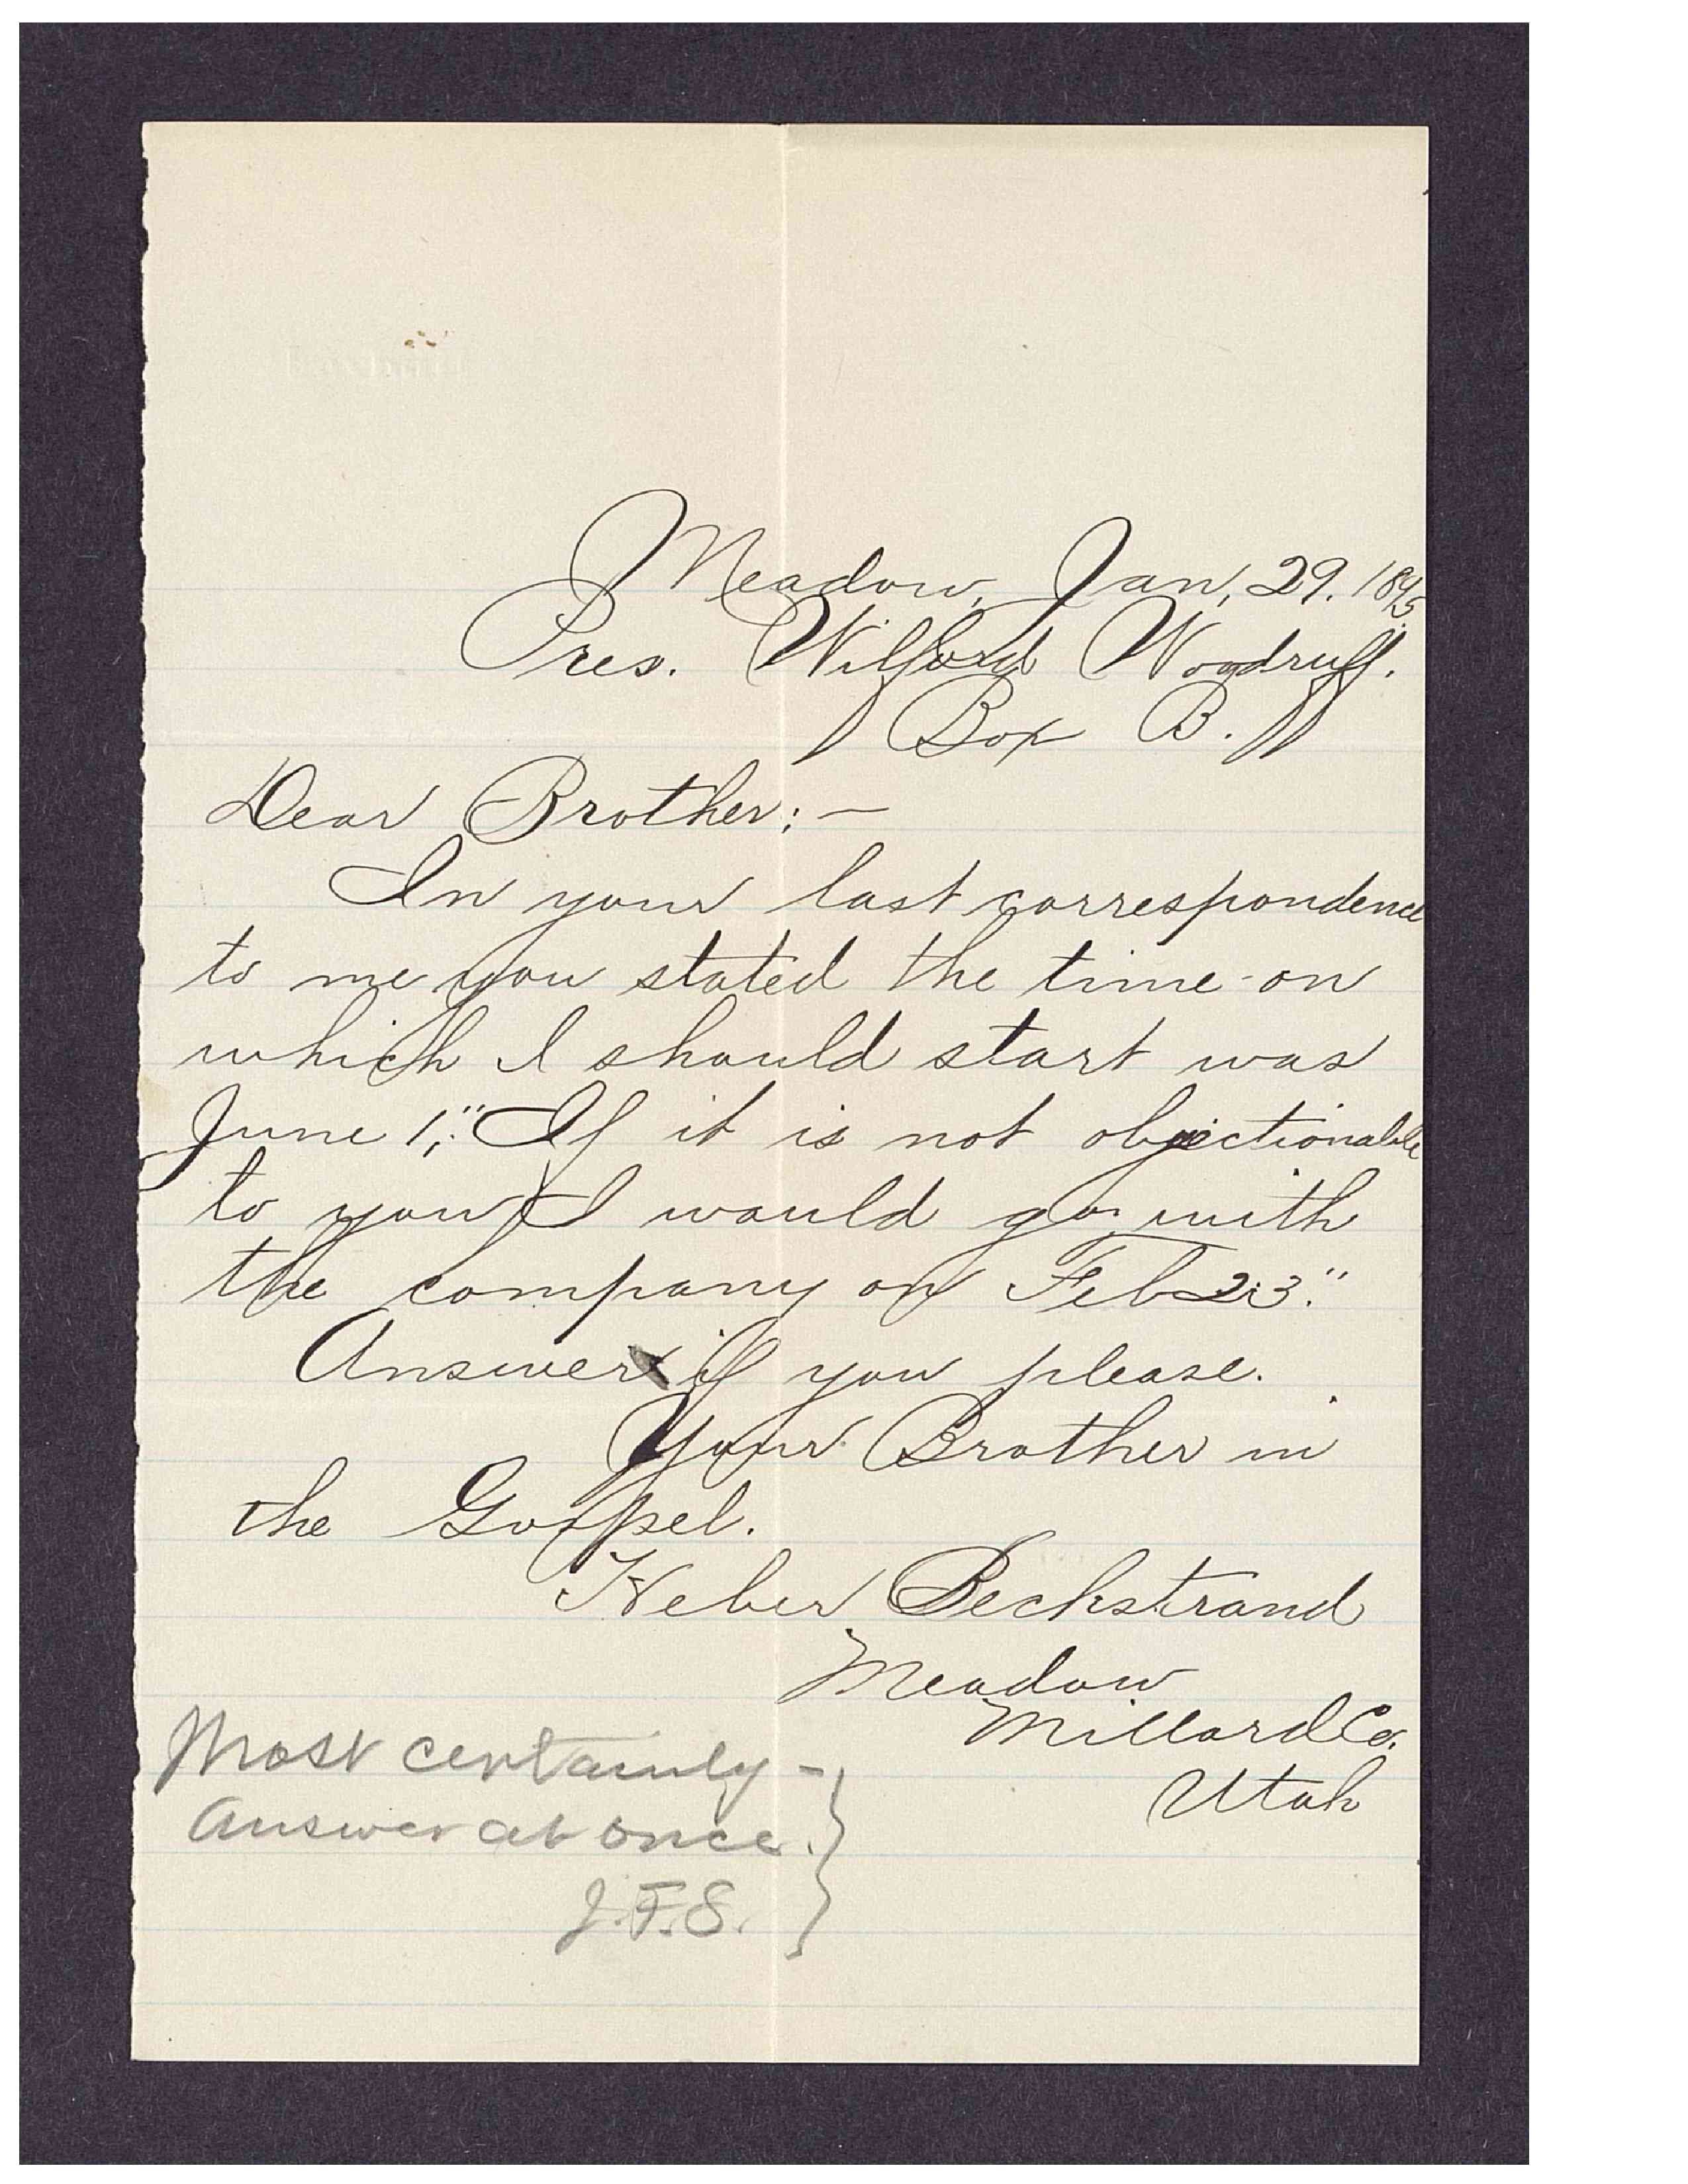 Meadow, Jan, 29. 1895
Pres. Wilford Woodruff.
Box B.
Dear Brother:—
In your last correspondence
to me you stated the time on
which I should start was
June 1," If it is not objectionable
to you I would go with
the company on Feb 23."
Answer if you please.
Your Brother in
the Gospel.
Heber Beckstrand
Meadow
Millard Co.
Utah
Most certainly -
Answer at once.
J.F.S.